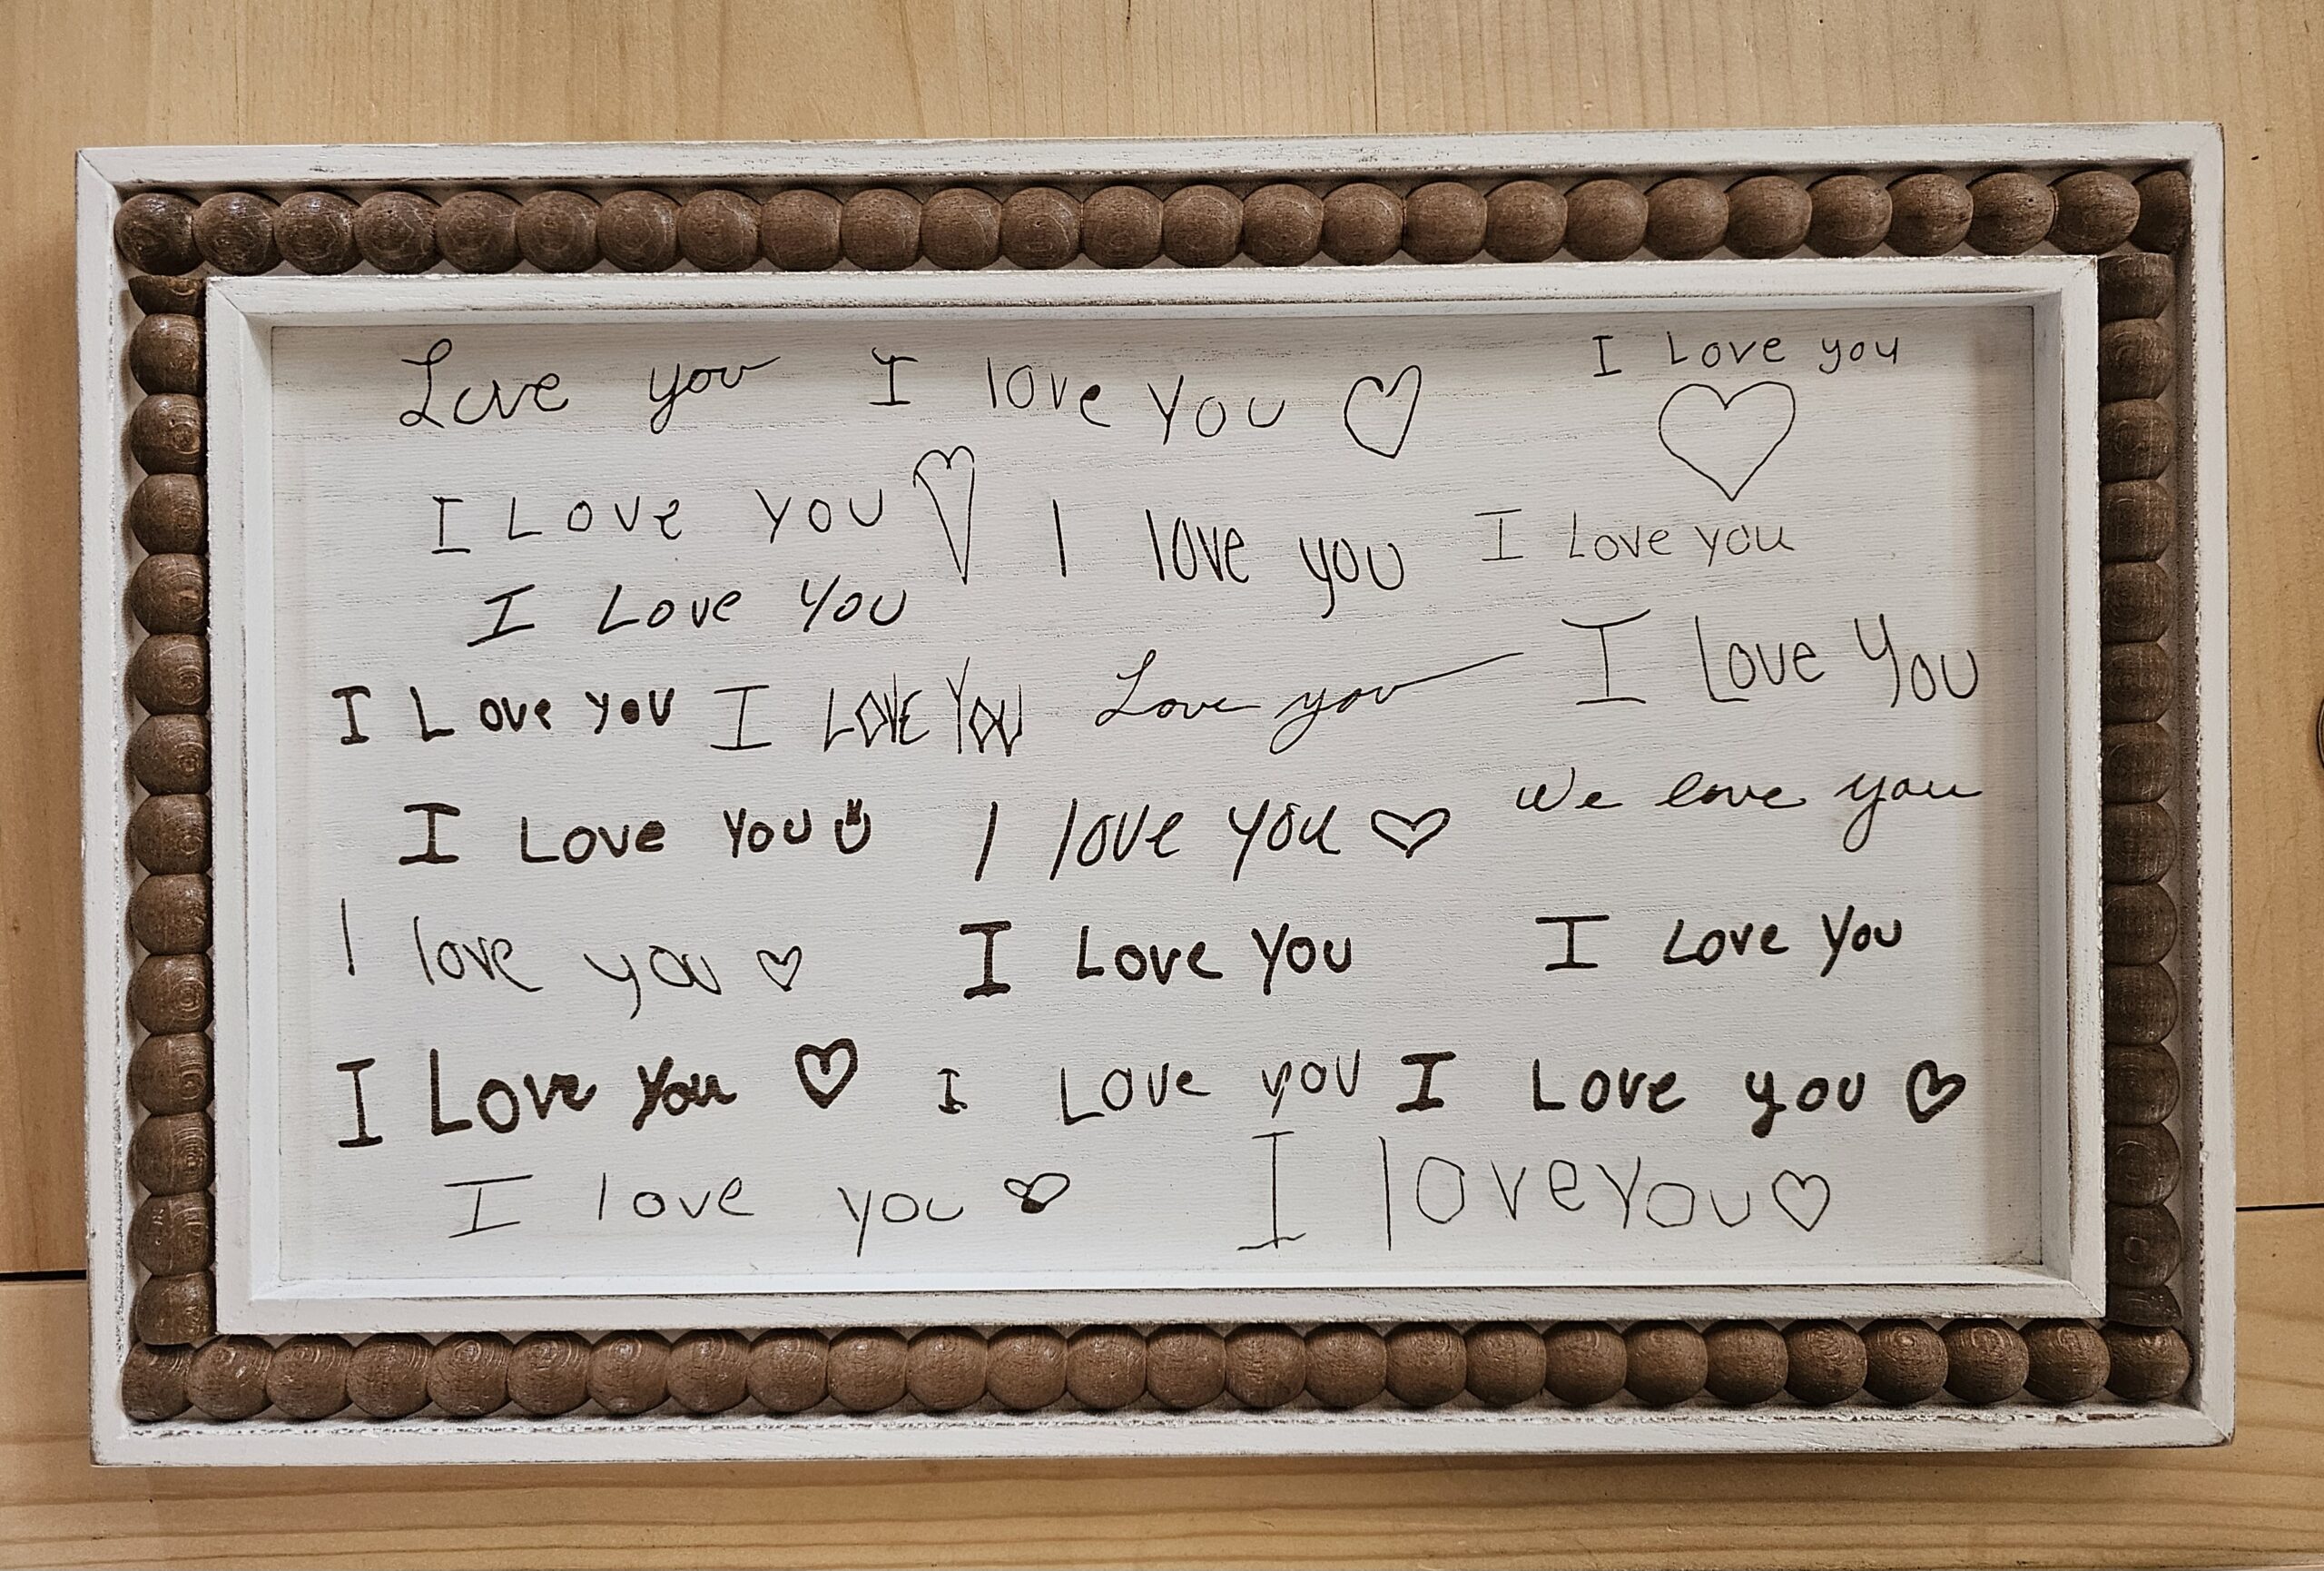 Love you I love you ♡ I Love you
I Love you I love you I Love you
I Love You
I Love you I LOVE YOU Love you I Love You
I Love You I love you ♡ We love you
I love you ♡ I Love You I Love You
I Love You ♡ I Love you I Love you ♡
I love you ♡ I love you ♡